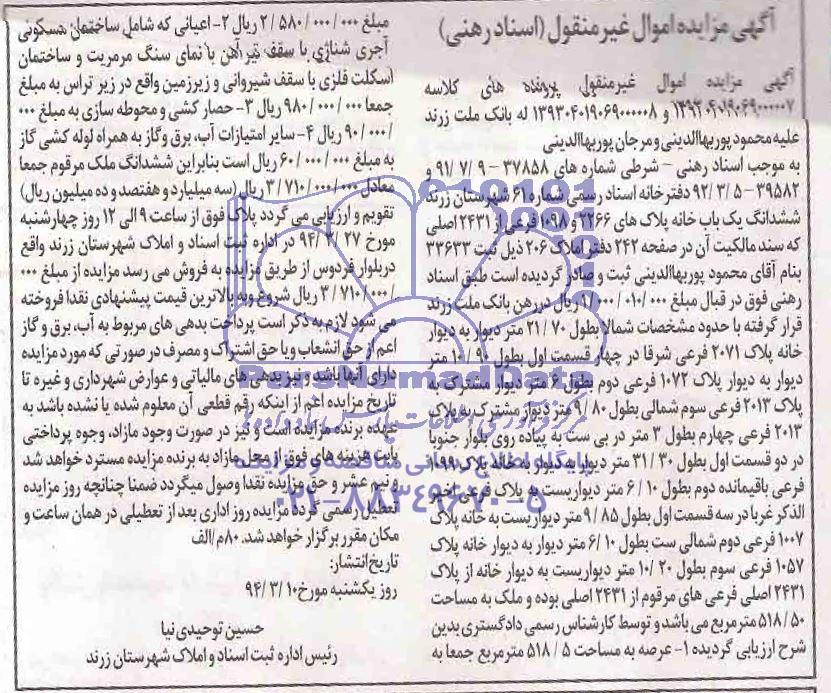 آگهی مزایده اموال غیرمنقول (اسناد رهنی)
آگهی مزایده اموال غیرمنقول پرونده های کلاسه
۱۳۹۳۰۴۰۱۹۰۶۹۰۰۰۰۰۷ و ۱۳۹۳۰۴۰۱۹۰۶۹۰۰۰۰۰۸ له بانک ملت زرند
علیه محمود پوربهاالدینی و مرجان پوربهاالدینی
به موجب اسناد رهنی – شرطی شماره های ۳۷۸۵۸ – ۹ /۷ /۹۱ و
۳۹۵۸۲ – ۵ /۳ /۹۲ دفترخانه اسناد رسمی شماره ۶۱ شهرستان زرند
ششدانگ یک باب خانه پلاک های ۲۲۶۶ و ۱۰۹۸ فرعی از ۲۴۳۱ اصلی
که سند مالکیت آن در صفحه ۲۴۲ دفتر املاک ۲۰۶ ذیل ثبت ۳۳۶۳۳
بنام آقای محمود پوربهاالدینی ثبت و صادر گردیده است طبق اسناد
رهنی فوق در قبال مبلغ ۰۰۰/ ۰۱۰/ ۰۰۰/ ۱ ریال در رهن بانک ملت زرند
قرار گرفته با حدود مشخصات شمالا بطول ۷۰ /۲۱ متر دیوار به دیوار
خانه پلاک ۲۰۷۱ فرعی شرقا در چهار قسمت اول بطول ۹۰ /۱۰ متر
دیوار به دیوار پلاک ۱۰۷۲ فرعی دوم بطول ۶ متر دیوار مشترک به
پلاک ۲۰۱۳ فرعی سوم شمالی بطول ۸۰ /۹ متر دیوار مشترک به پلاک
۲۰۱۳ فرعی چهارم بطول ۳ متر در بی ست به پیاده روی بلوار جنوبا
در دو قسمت اول بطول ۳۰ /۳۱ متر دیوار به دیوار به خانه پلاک ۱۰۹۹
فرعی باقیمانده دوم بطول ۱۰ /۶ متر دیواریست به پلاک فرعی اخیر
الذکر غربا در سه قسمت اول بطول ۸۵ /۹ متر دیواریست به خانه پلاک
۱۰۰۷ فرعی دوم شمالی ست بطول ۱۰ /۶ متر دیوار به دیوار خانه پلاک
۱۰۵۷ فرعی سوم بطول ۲۰ /۱۰ متر دیواریست به دیوار خانه از پلاک
۲۴۳۱ اصلی فرعی های مرقوم از ۲۴۳۱ اصلی بوده و ملک به مساحت
۵۰ /۵۱۸ مترمربع می باشد و توسط کارشناس رسمی دادگستری بدین
شرح ارزیابی گردیده ۱- عرصه به مساحت ۵ /۵۱۸ مترمربع جمعا به
مبلغ ۰۰۰/ ۰۰۰/ ۵۸۰/ ۲ ریال ۲- اعیانی که شامل ساختمان مسکونی
آجری شناژی با سقف تیرآهن با نمای سنگ مرمریت و ساختمان
اسکلت فلزی با سقف شیروانی و زیرزمین واقع در زیر تراس به مبلغ
جمعا ۰۰۰/ ۰۰۰/ ۹۸۰ ریال ۳- حصار کشی و محوطه سازی به مبلغ ۰۰۰
/۰۰۰ /۹۰ ریال ۴- سایر امتیازات آب، برق و گاز به همراه لوله کشی گاز
به مبلغ ۰۰۰/ ۰۰۰/ ۶۰ ریال است بنابراین ششدانگ ملک مرقوم جمعا
معادل ۰۰۰/ ۰۰۰/ ۷۱۰/ ۳ ریال (سه میلیارد و هفتصد و ده میلیون ریال)
تقویم و ارزیابی می گردد پلاک فوق از ساعت ۹ الی ۱۲ روز چهارشنبه
مورخ ۲۷ /۳ /۹۴ در اداره ثبت اسناد و املاک شهرستان زرند واقع
در بلوار فردوس از طریق مزایده به فروش می رسد مزایده از مبلغ ۰۰۰
/۰۰۰ /۷۱۰ /۳ ریال شروع و به بالاترین قیمت پیشنهادی نقدا فروخته
می شود لازم به ذکر است پرداخت بدهی های مربوط به آب، برق و گاز
اعم از حق انشعاب و یا حق اشتراک و مصرف در صورتی که مورد مزایده
دارای آنها باشد و نیز بدهی های مالیاتی و عوارض شهرداری و غیره تا
تاریخ مزایده اعم از اینکه رقم قطعی آن معلوم شده یا نشده باشد به
عهده برنده مزایده است و نیز در صورت وجود مازاد، وجوه پرداختی
بابت هزینه های فوق از محل مازاد به برنده مزایده مسترد خواهد شد
و نیم عشر و حق مزایده نقدا وصول میگردد ضمنا چنانچه روز مزایده
تعطیل رسمی گردد مزایده روز اداری بعد از تعطیلی در همان ساعت و
مکان مقرر برگزار خواهد شد. ۸۰م/الف
تاریخ انتشار:
روز یکشنبه مورخ ۱۰ /۳ /۹۴
حسین توحیدی نیا
رئیس اداره ثبت اسناد و املاک شهرستان زرند
ParsNamadData
پایگاه اطلاع رسانی مناقصه و مزایده
۰۲۱-۸۸۳۴۹۶۷۰-۵